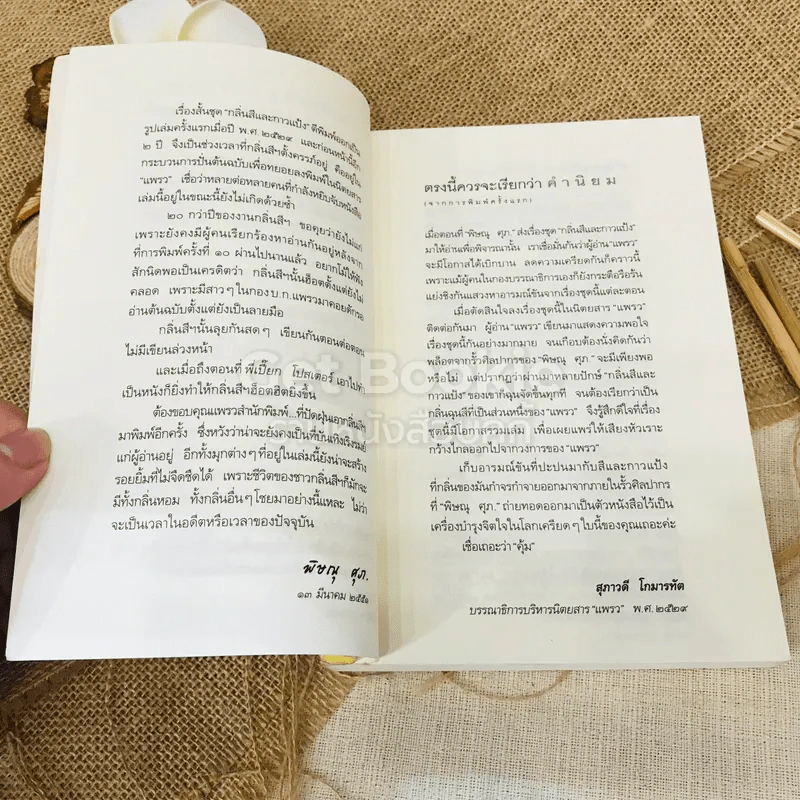 เรื่องสั้นชุด "กลิ่นสีและกาวแป้ง" ตีพิมพ์ออกเป็น
รูปเล่มครั้งแรกเมื่อปี พ.ศ.๒๕๒๙ และก่อนหน้านี้อีก
๒ ปี จึงเป็นช่วงเวลาที่กลิ่นสีฯตั้งครรภ์อยู่ คืออยู่ใน
กระบวนการปั่นต้นฉบับเพื่อทยอยลงพิมพ์ในนิตยสาร
"แพรว" เชื่อว่าหลายต่อหลายคนที่กำลังหยิบจับหนังสือ
เล่มนี้อยู่ในขณะนี้ยังไม่เกิดด้วยซ้ำ
๒๐ กว่าปีของงานกลิ่นสีฯ ขอคุยว่ายังไม่แก่
เพราะยังคงมีผู้คนเรียกร้องหาอ่านกันอยู่หลังจาก
ที่การพิมพ์ครั้งที่ ๑๐ ผ่านไปนานแล้ว อยากโม้ให้ฟัง
สักนิดพอเป็นเครดิตว่า กลิ่นสีฯนั้นฮ็อตตั้งแต่ยังไม่
คลอด เพราะมีสาวๆในกอง บ.ก.แพรวมาคอยดักรอ
อ่านต้นฉบับตั้งแต่ยังเป็นลายมือ
กลิ่นสีฯนั้นลุยกันสดๆ เขียนกันตอนต่อตอน
ไม่มีเขียนล่วงหน้า
และเมื่อถึงตอนที่ พี่เปี๊ยก โปสเตอร์ เอาไปทำ
เป็นหนังก็ยิ่งทำให้กลิ่นสีฯฮ็อตฮิตยิ่งขึ้น
ต้องขอบคุณแพรวสำนักพิมพ์...ที่ปัดฝุ่นเอากลิ่นสีฯ
มาพิมพ์อีกครั้ง ซึ่งหวังว่าน่าจะยังคงเป็นที่บันเทิงเริงรมย์
แก่ผู้อ่านอยู่ อีกทั้งมุกต่างๆที่อยู่ในเล่มนี้ยังน่าจะสร้าง
รอยยิ้มที่ไม่จืดชืดได้ เพราะชีวิตของชาวกลิ่นสีฯก็มักจะ
มีทั้งกลิ่นหอม ทั้งกลิ่นอื่นๆโชยมาอย่างนี้แหละ ไม่ว่า
จะเป็นเวลาในอดีตหรือเวลาของปัจจุบัน
พิษณุ ศุภ.
๑๓ มีนาคม ๒๕๕๑
ตรงนี้ควรจะเรียกว่า คำนิยม
(จากการพิมพ์ครั้งแรก)
เมื่อตอนที่ "พิษณุ ศุภ." ส่งเรื่องชุด "กลิ่นสีและกาวแป้ง"
มาให้อ่านเพื่อพิจารณานั้น เราเชื่อมั่นกันว่าผู้อ่าน "แพรว"
จะมีโอกาสได้เบิกบาน ลดความเครียดกันก็คราวนี้
เพราะแม้ผู้คนในกองบรรณาธิการเองก็ยังกระตือรือร้น
แย่งชิงกันแสวงหาอารมณ์ขันจากเรื่องชุดนี้แต่ละตอน
เมื่อตัดสินใจลงเรื่องชุดนี้ในนิตยสาร "แพรว"
ติดต่อกันมา ผู้อ่าน "แพรว" เขียนมาแสดงความพอใจ
เรื่องชุดนี้กันอย่างมากมาย จนเกือบต้องนั่งคิดกันว่า
พล็อตจากรั้วศิลปากรของ "พิษณุ ศุภ." จะมีเพียงพอ
หรือไม่ แต่ปรากฏว่าผ่านมาหลายปักษ์ "กลิ่นสีและ
กาวแป้ง" ของเขาก็ฉุนจัดขึ้นทุกที จนต้องเรียกว่าเป็น
กลิ่นฉุนสีที่เป็นส่วนหนึ่งของ "แพรว" จึงรู้สึกดีใจที่เรื่อง
ชุดนี้มีโอกาสรวมเล่ม เพื่อเผยแพร่ให้เสียงหัวเราะ
กว้างไกลออกไปจากวงการของ "แพรว"
เก็บอารมณ์ขันที่ปะปนมากับสีและกาวแป้ง
ที่กลิ่นของมันกำจรกำจายออกมาจากภายในรั้วศิลปากร
ที่ "พิษณุ ศุภ." ถ่ายทอดออกมาเป็นตัวหนังสือไว้เป็น
เครื่องบำรุงจิตใจในโลกเครียดๆใบนี้ของคุณเถอะค่ะ
เชื่อเถอะว่า "คุ้ม"
สุภาวดี โกมารทัต
บรรณาธิการบริหารนิตยสาร "แพรว" พ.ศ.๒๕๒๙
Get Bookie
ร้านหนังสือปีติ